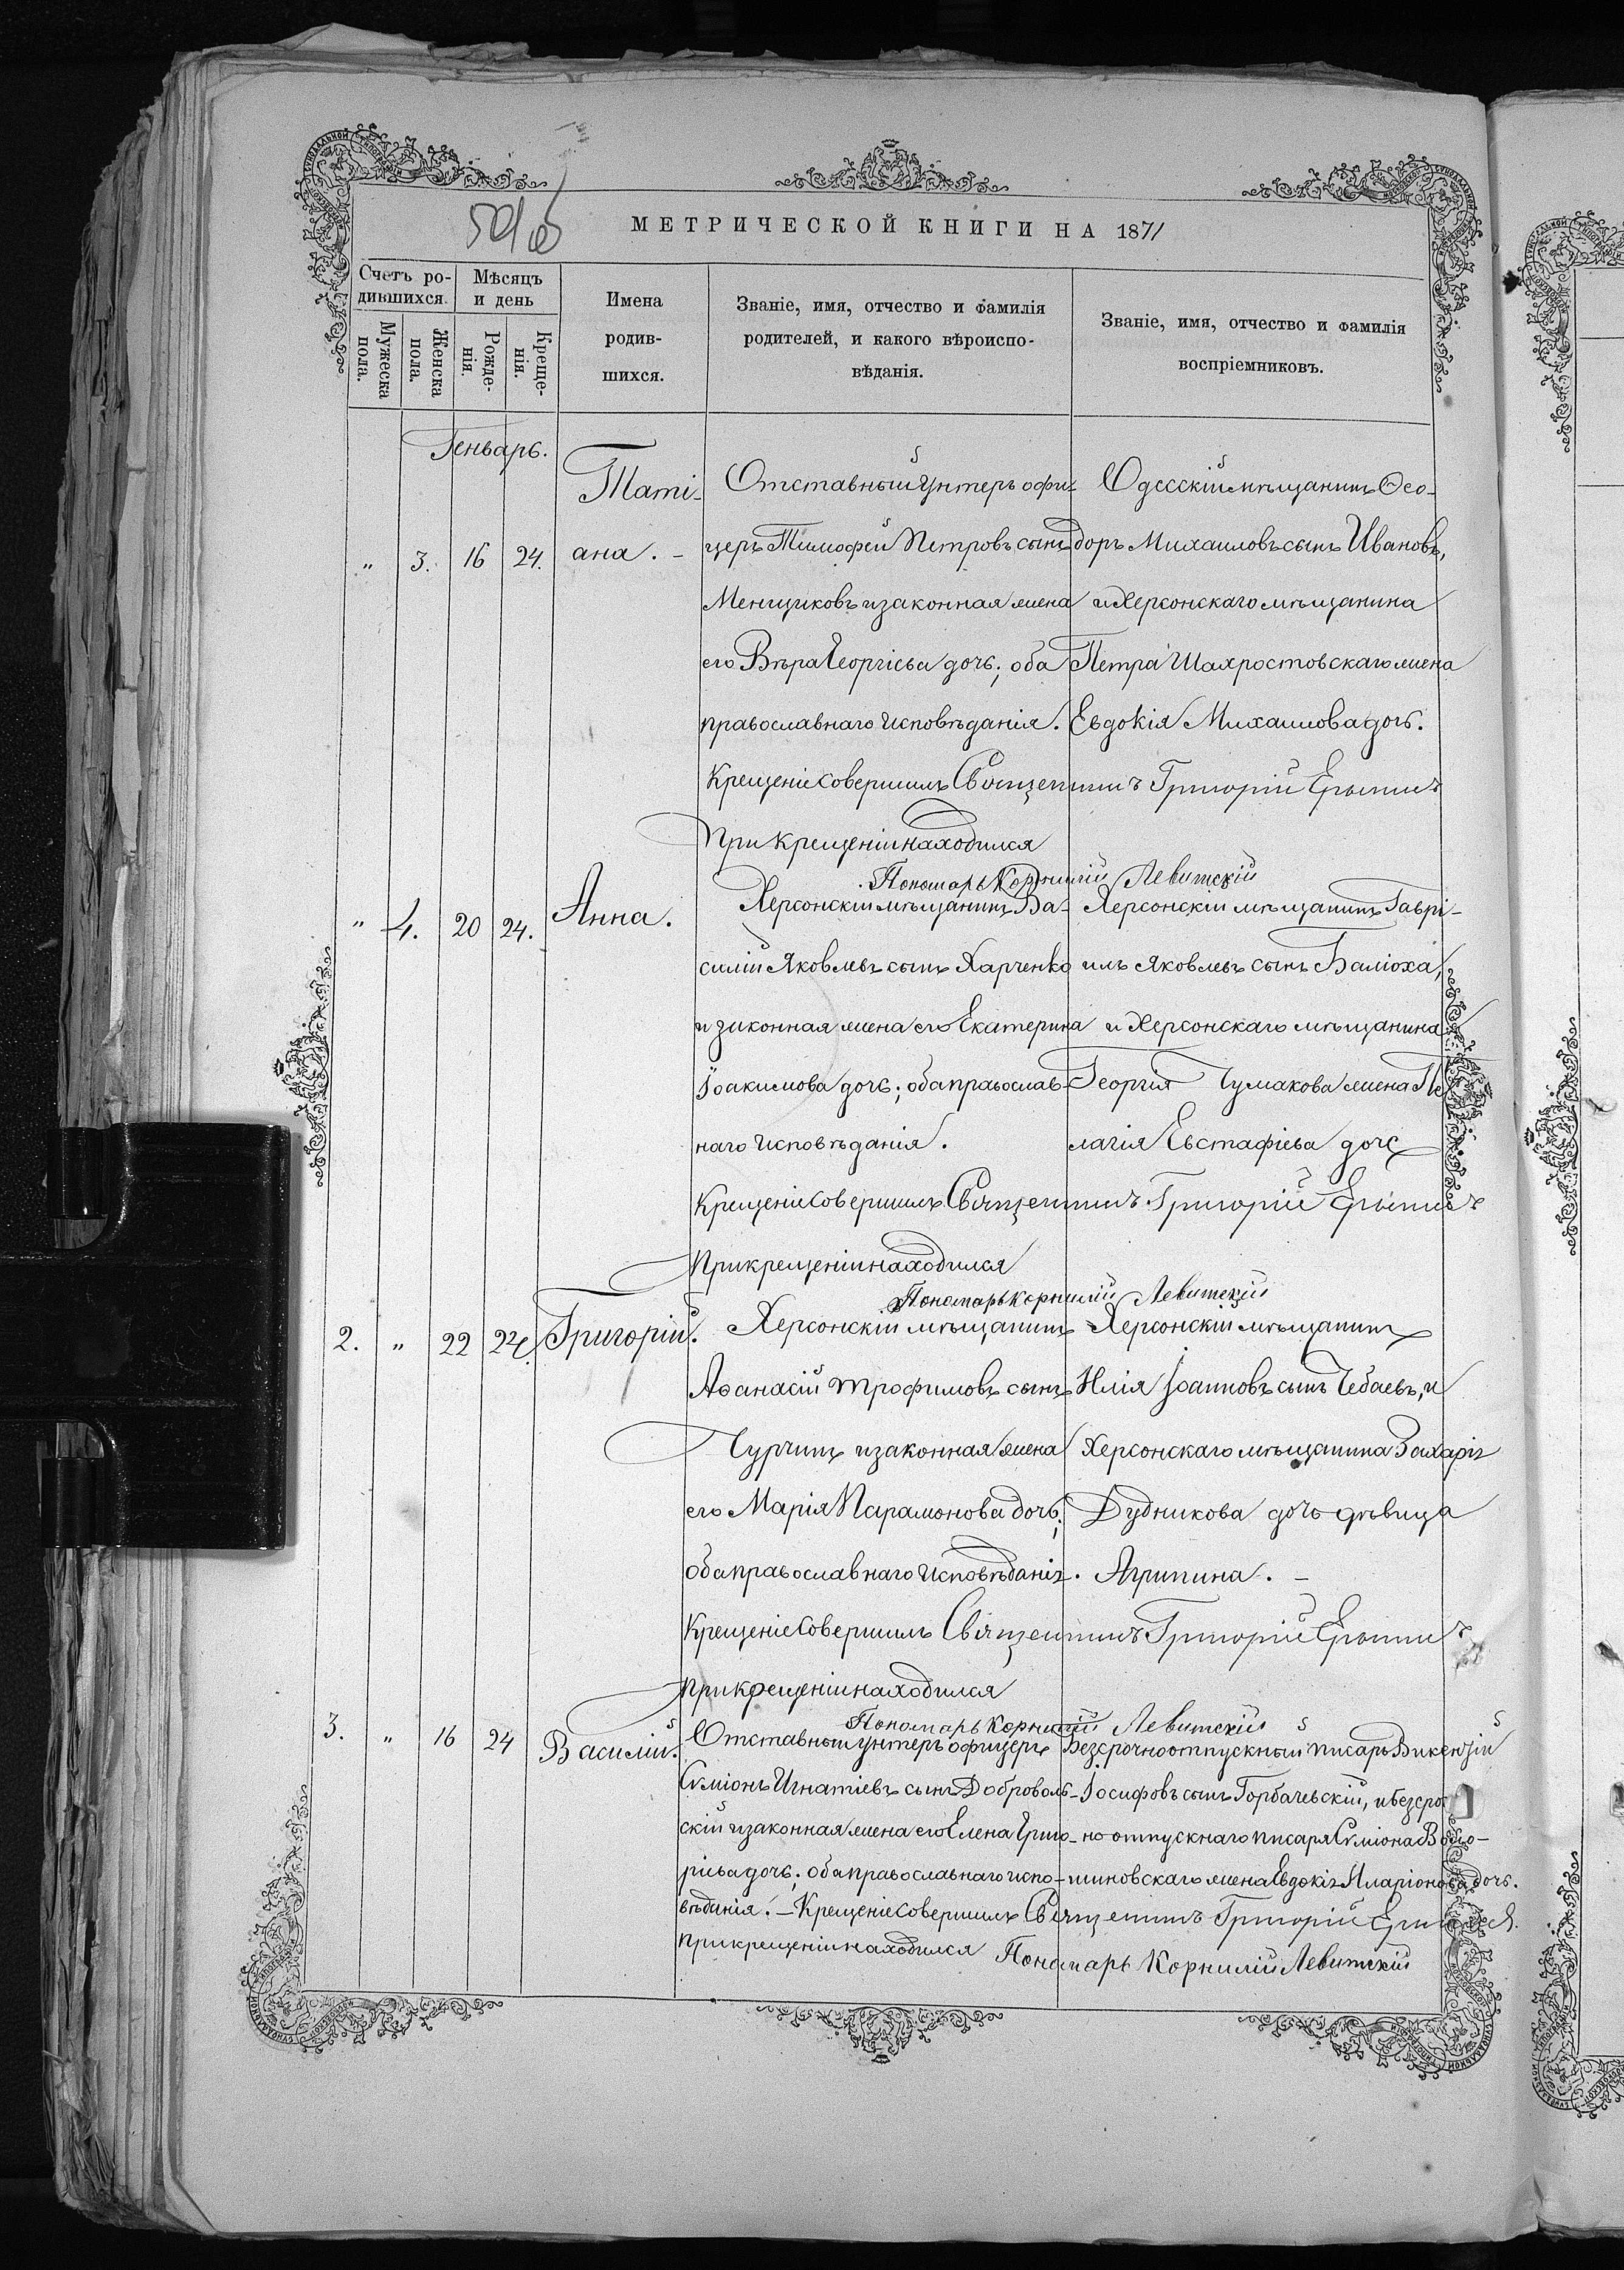 МЕТРИЧЕСКОЙ КНИГИ НА 1871
Счетъ родившихся.
Мѣсяцъ и день
Имена родившихся.
Званіе, имя, отчество и фамилія родителей, и какого вѣроисповѣданія.
Званіе, имя, отчество и фамилія воспріемниковъ.
Мужеска пола.
Женска пола.
Рожденія.
Крещенія.
Генварь.
" 3. 16 24.
Таті-
ана. -
Отставный унтеръ офи-
церъ Тимофей Петровъ сынъ
Менщиковъ и законная жена
его Вѣра Георгіева дочь; оба
православнаго исповѣданія.
Одесскій мѣщанинъ Ѳео-
доръ Михаиловъ сынъ Ивановъ,
и Херсонскаго мѣщанина
Петра Шахростовскаго жена
Евдокія Михаилова дочь.
Крещеніе совершилъ Священникъ Григорій
При крещеніи находился
Пономарь Корнилій Левитскій
" 4. 20 24.
Анна.
Херсонскій мѣщанинъ Ва-
силій Яковлевъ сынъ Харченко
и законная жена его Екатерина
Іоакимова дочь; оба православ-
наго исповѣданія.
Херсонскій мѣщанинъ Гаврі-
илъ Яковлевъ сынъ Баліоха,
и Херсонскаго мѣщанина
Георгія Чумакова жена Пе
лагія Евстафіева дочь
Крещеніе совершилъ Священникъ Григорій
При крещеніи находился
Пономарь Корнилій Левитскій
2. " 22 24.
Григорій.
Херсонскій мѣщанинъ
Аѳанасій Трофимовъ сынъ
Чурчинъ и законная жена
его Марія Парамонова дочь;
оба православнаго исповѣданія.
Херсонскій мѣщанинъ
Илія Іоанновъ сынъ Чебаевъ, и
Херсонскаго мѣщанина Захарія
Дудникова дочь дѣвица
Агрипина. -
Крещеніе совершилъ Священникъ Григорій
При крещеніи находился
Пономарь Корнилій Левитскій
3. " 16 24
Василій.
Отставный унтеръ офицеръ
Симіонъ Игнатіевъ сынъ Доброволь-
скій и законная жена его Елена Григо-
ріева дочь; оба православнаго испо-
вѣданія. -
Безсрочноотпускный писарь Викентій
Іосифовъ сынъ Горбачевскій, и безсроч
но отпускнаго писаря Симіона
жена Евдокія Иларіонова дочь.
Крещеніе совершилъ Священникъ Григорій
При крещеніи находился Пономарь Корнилій Левитскій